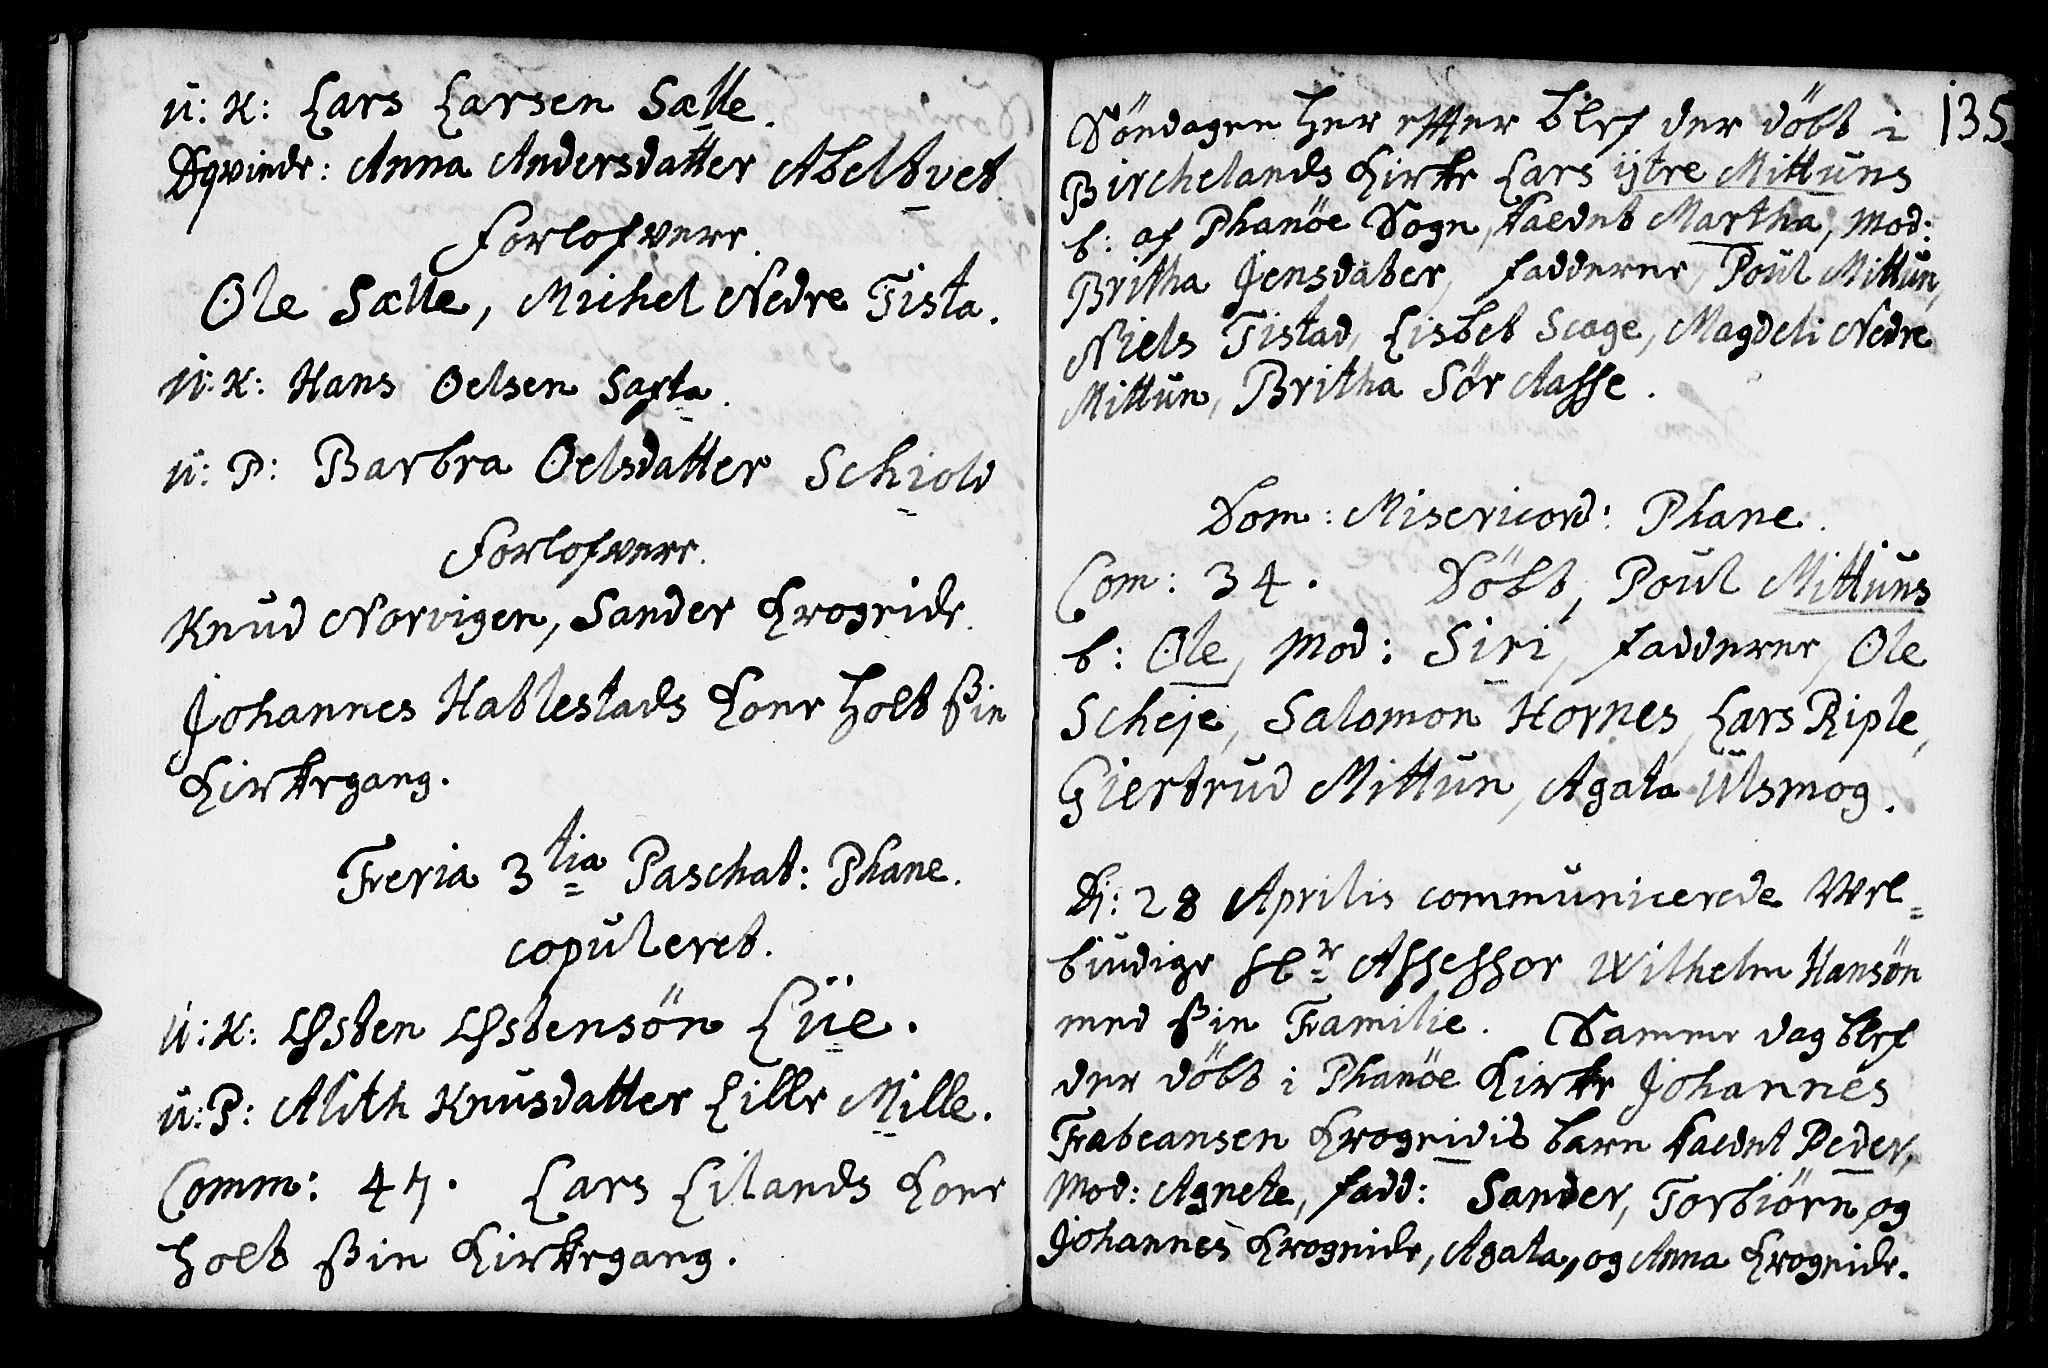 u: K: Lars Larsen Sælle.
Qvinde: Anna Andersdatter Abeltvet.
Forlofvere.
Ole Sælle, Michel Nedre Tista.
u: K: Hans Oelsen Saxta.
u: P: Barbra Oelsdatter Schiold
Forlofvere.
Knud Norvigen, Sander Krogeide.
Johannes Hatlestads Kone holt sin
Kirkegang.
Feria 3tia Paschat: Phane.
copuleret.
u: K: Østen Østensön Lüe.
u: P: Alith Knusdatter Lille Mille.
Comm: 47. Lars Lilands Kone
holt sin Kirkegang.
135
Söndagen her effter blef der döbt i
Birchelands Kirke Lars ijtre Mittuns
b: af Phanöe Sogn, kaednt Martha, Mod:
Britha Jensdater, Fadderne, Poul Mittun,
Niels Tistad, Lisbet Scage, Magdeli Nedre
Mittun, Britha Sör Aasse.
Dom: Misericord: Phane.
Com: 34. Döbt, Poul Mittuns
b: Ole, Mod: Siri, Fadderne, Ole
Scheje, Salomon Hornes, Lars Riple,
Giertrud Mittun, Agata Ulsmog.
D: 28 Aprilis communicerede Vel=
biudige Hr Assessor Wilhelm Hansön
med sin Familie. Samme dag blef
der döbt i Phanöe Kirke Johannes
Fabeansen Krogeidis barn kaednt Peder,
Mod: Agnete, Fadd: Sander, Torbiörn og
Johannes Krogeide, Agata, og Anna Krogeide.